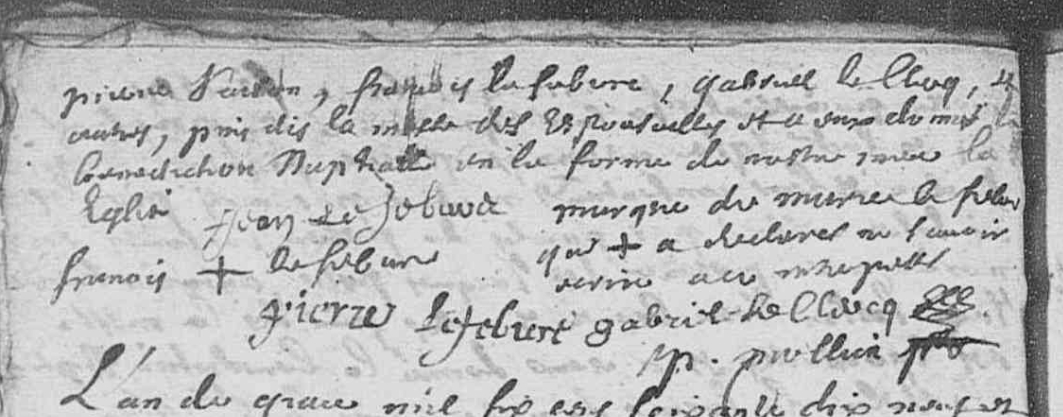 pierre , francois le febure, gabriel le Clercq, et
autres, puis dis la messe des Espousailles et a eux donnes la
benediction Nuptiale en la forme de nostre mere la
Eglise Jean Le Febure marque de marie le febu
que + a declares ne scavoir
francois + le febure ecrire a ce interpellé
Pierre Lefebure gabriel le Clercq
p.
L'an de grace mil six cens soixante dix neuf